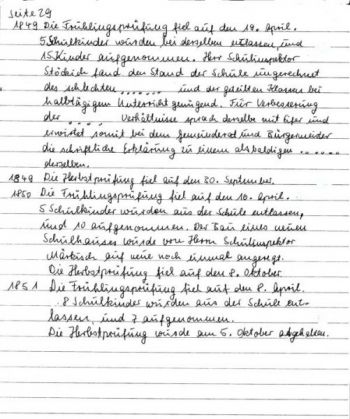 Seite 29
1849 Die Frühlingsprüfung fiel auf den 19. April.
5 Schulkinder würden bei derselben entlassen, und
15 Kinder aufgenommen. Herr Schulinspektor
fand den Stand der Schule ungerechnet
des schlechten ....... und der geteilten Klassen bei
halbtägigem Unterricht genügend. Für Verbesserung
der ....... Verhältnisse sprach derselbe mit Eifer und
somit bei dem Gemeinderat und Bürgermeister
die schriftliche Erklärung zu einem alsbaldigen ......
derselben.
1849 Die Herbstprüfung fiel auf den 30. September.
1850 Die Frühlingsprüfung fiel auf den 10. April.
5 Schulkinder würden aus der Schule entlassen,
und 10 aufgenommen. Der Bau eines neuen
Schulhauses würde von Herrn Schulinspektor
auf neue noch einmal angeregt.
Die Herbstprüfung fiel auf den 8. Oktober.
1851 Die Frühlingsprüfung fiel auf den 8. April.
8 Schulkinder würden aus der Schule ent-
lassen, und 7 aufgenommen.
Die Herbstprüfung würde am 6. Oktober abgehalten.